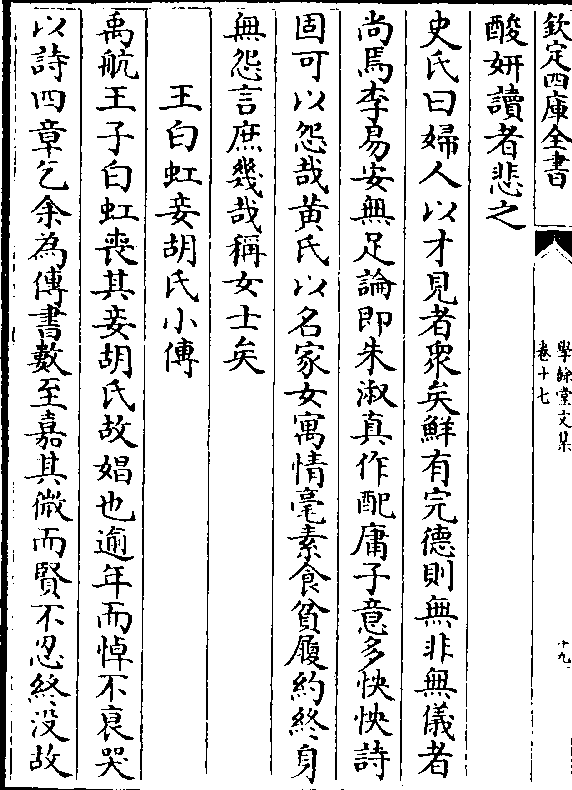 欽定四庫全書
學餘堂文集
卷十七
十九
酸姸讀者悲之
史氏曰婦人以才見者衆矣鮮有完德則無非無儀者
尚焉李易安無足論即朱淑真作配庸子意多怏怏詩
固可以怨哉黄氏以名家女寓情毫素食貧履約終身
無怨言庶幾哉稱女士矣
王白虹妾胡氏小傳
禹航王子白虹喪其妾胡氏故娼也逾年而悼不衰哭
以詩四章乞余為傳書數至嘉其微而賢不忍終没故